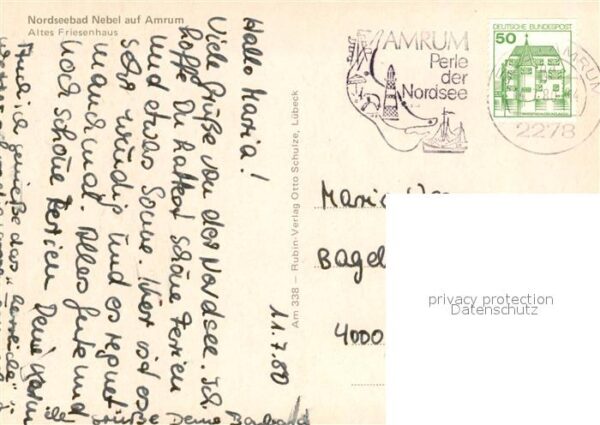 Nordseebad Nebel auf Amrum
Altes Friesenhaus
AMRUM
Perle
der
Nordsee
DEUTSCHE BUNDESPOST
50
2278
Am 338 — Rubin-Verlag Otto Schulze, Lübeck
11.7.80
Hallo Maria!
Viele Grüße von der Nordsee. Ich
hoffe Du hattest schöne Ferien
und etwas Sonne. Hier ist es
sehr windig und es regnet
manchmal. Alles Gute und
noch schöne Ferien Deine
Auch ich genieße das
Grüße Deine Barbara
Maria
Bagel
4000
privacy protection
Datenschutz